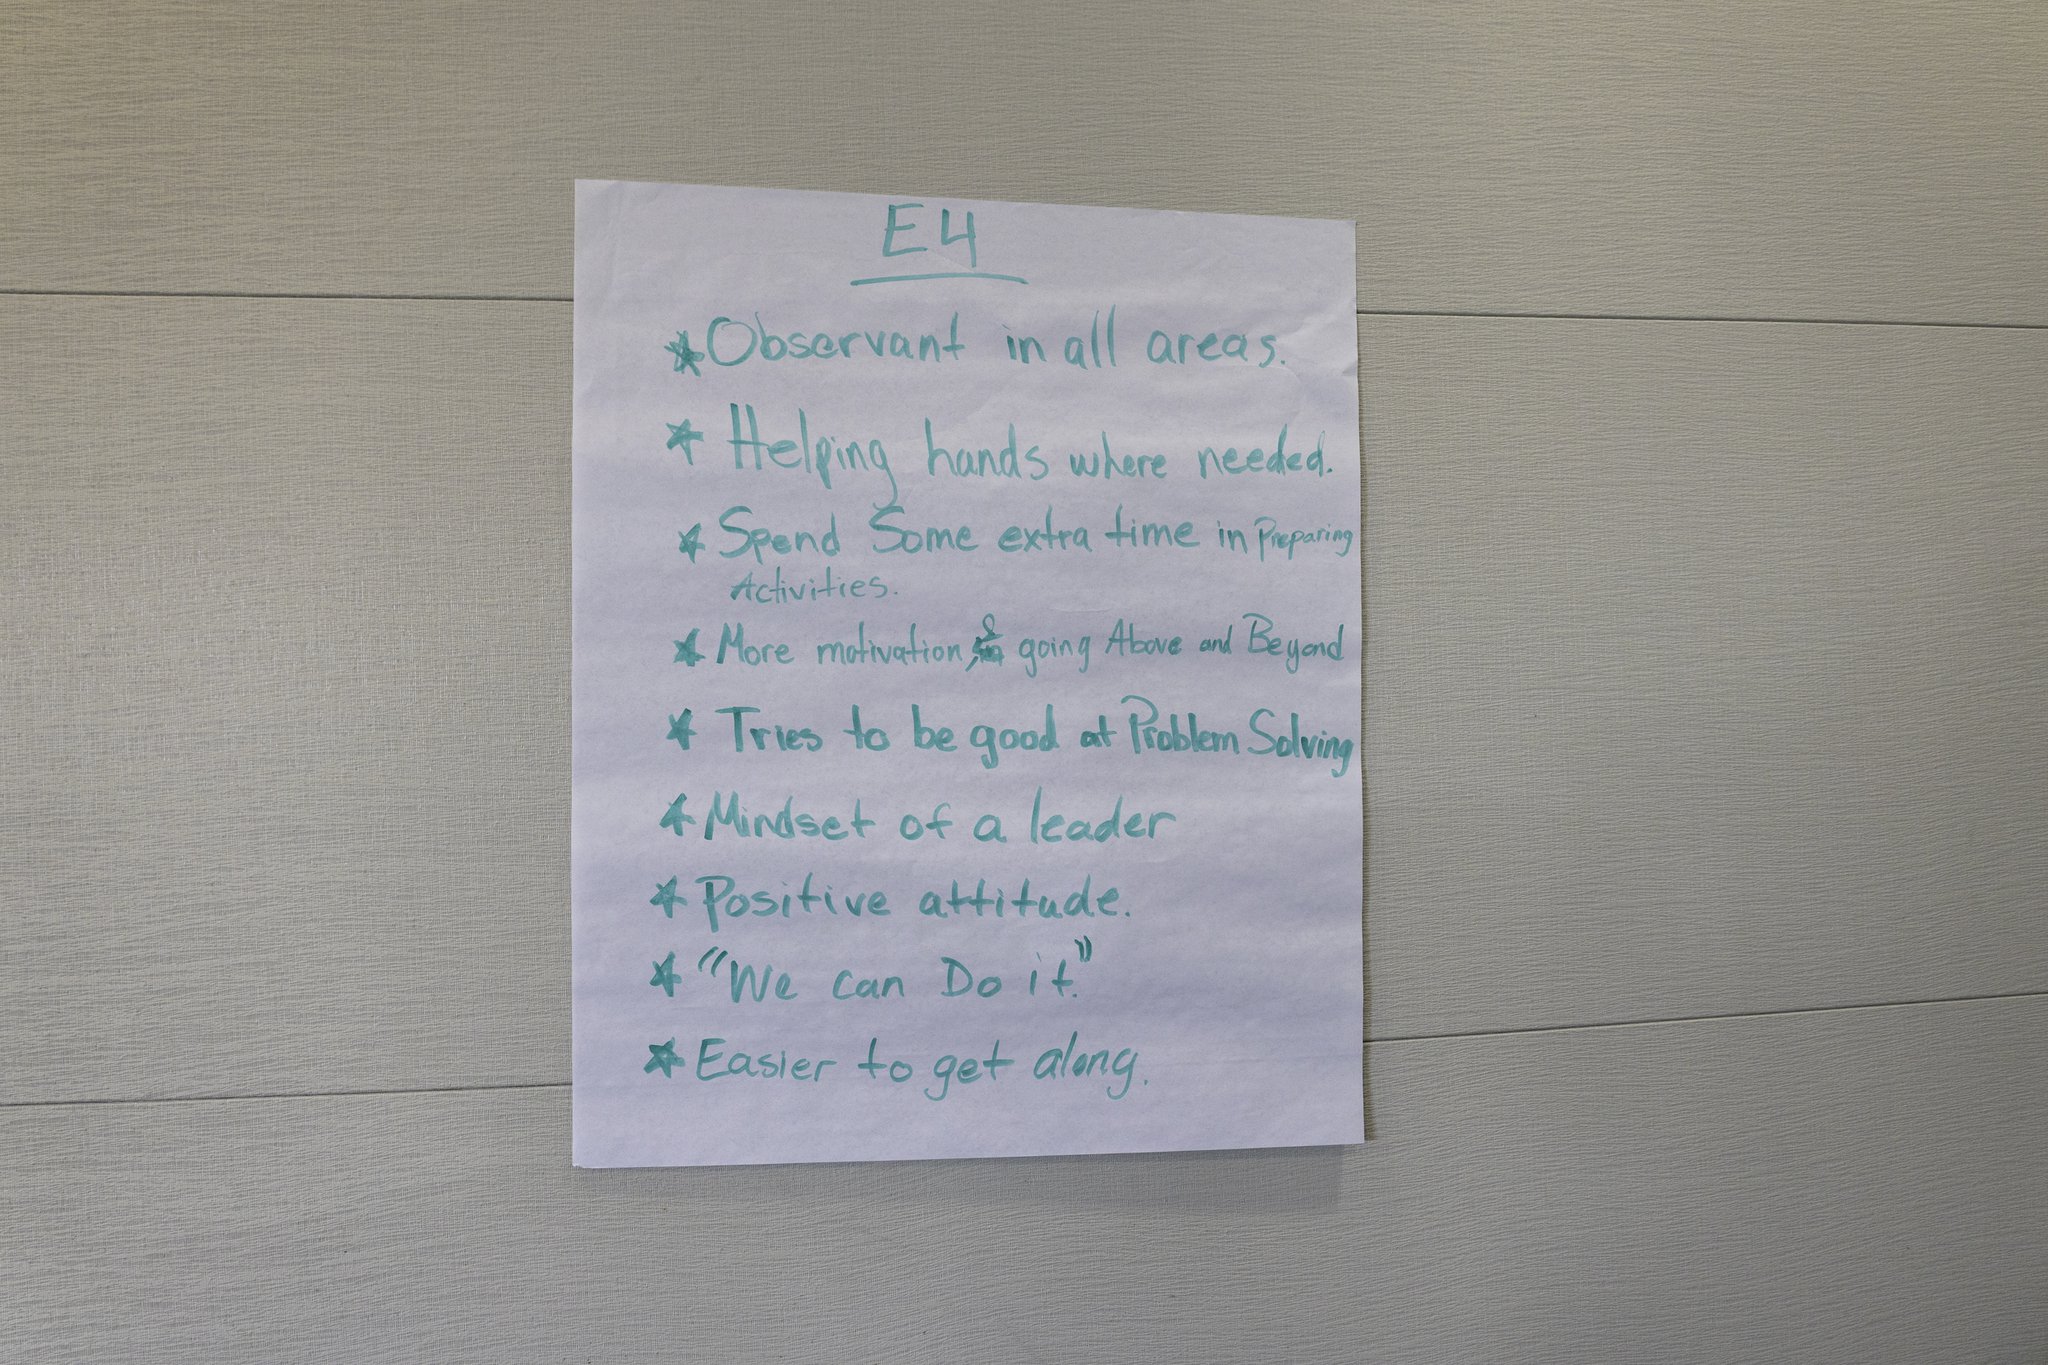 E4
* Observant in all areas.
* Helping hands where needed.
* Spend Some extra time in Preparing
Activities.
* More motivation, & going Above and Beyond
* Tries to be good at Problem Solving
* Mindset of a leader
* Positive attitude.
* "We can Do it."
* Easier to get along.